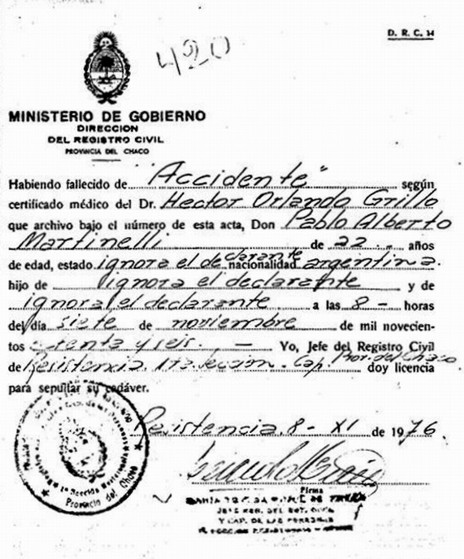 D. R. C. 14
420
MINISTERIO DE GOBIERNO
DIRECCION
DEL REGISTRO CIVIL
PROVINCIA DEL CHACO
Habiendo fallecido de "Accidente" según
certificado médico del Dr. Hector Orlando Grillo
que archivo bajo el número de esta acta, Don Pablo Alberto
Martinelli de 22 años
de edad, estado ignora el declarante nacionalidad argentina.
hijo de ignora el declarante y de
ignora el declarante a las 8- horas
del día siete de noviembre de mil novecien-
tos setenta y seis. — Yo, Jefe del Registro Civil
de Resistencia 1ra. seccion. Cap. Prov. del Chaco doy licencia
para sepultar su cadáver.
Resistencia, 8- XI de 1976.
Firma
JEFE REG. DEL EST. CIVIL
Y CAP. DE LAS PERSONAS
Provincia del Chaco